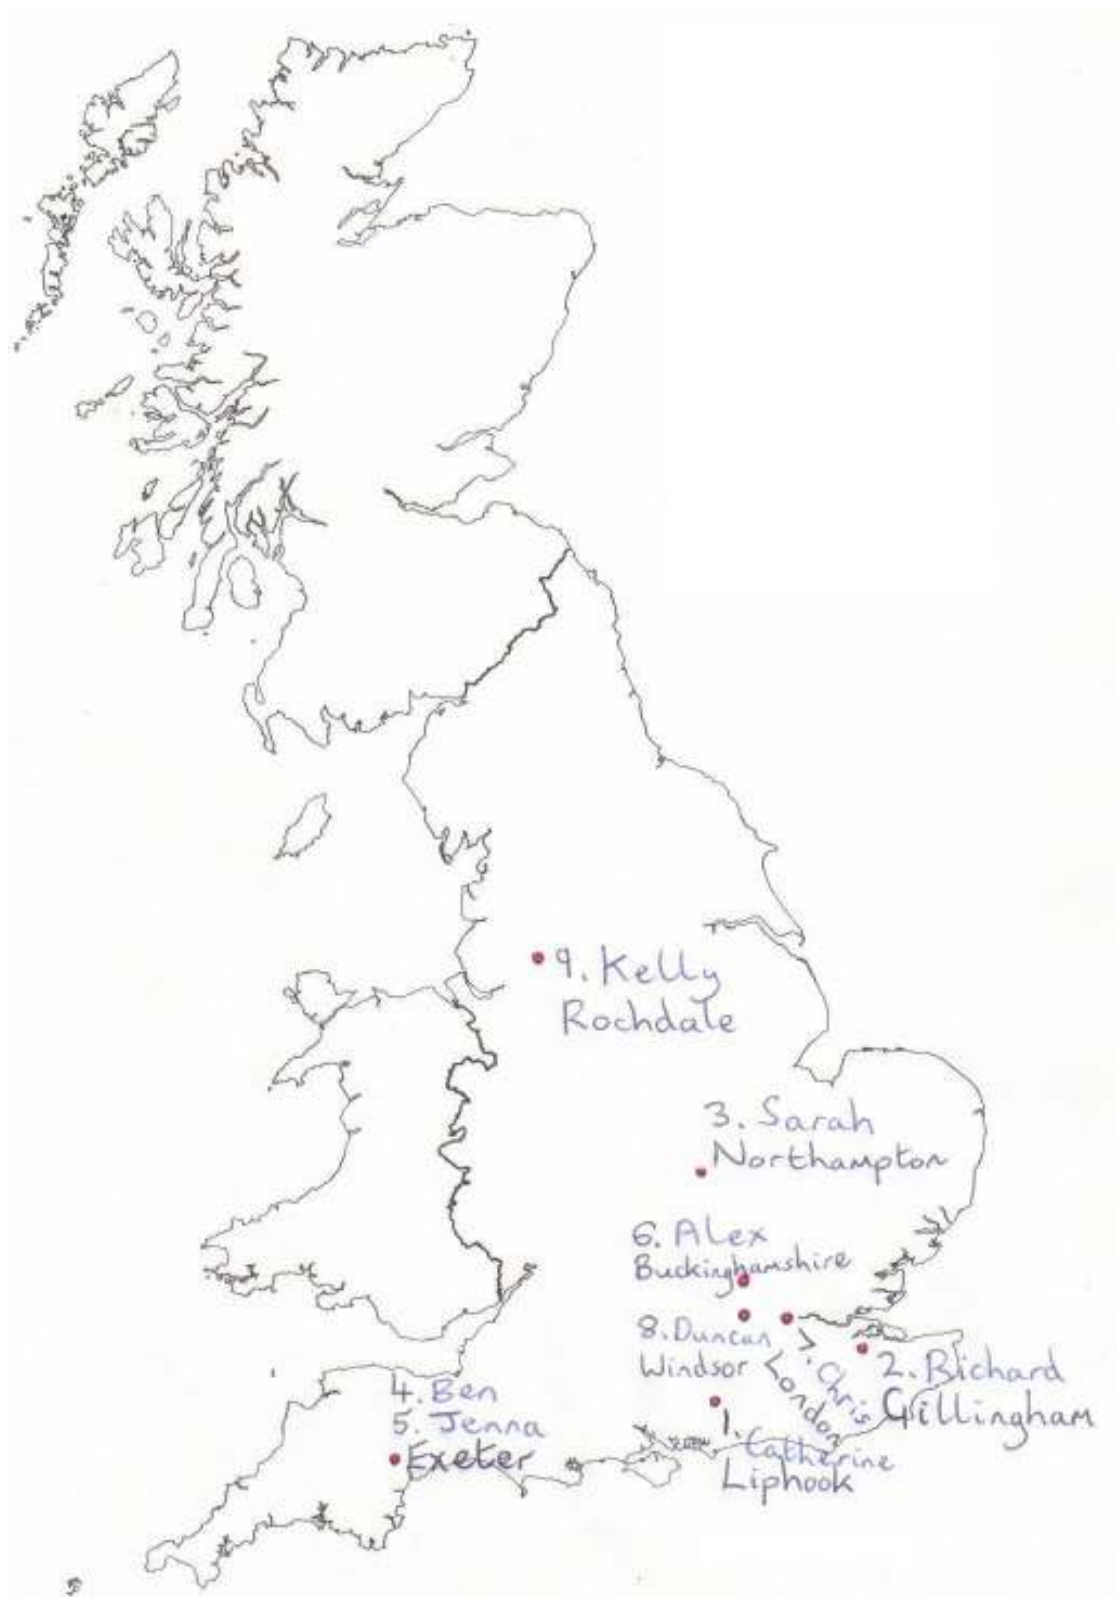 9. Kelly
Rochdale
3. Sarah
Northampton
6. Alex
Buckinghamshire
8. Duncan
Windsor
7. Chris
London
2. Richard
Gillingham
4. Ben
5. Jenna
Exeter
1. Catherine
Liphook